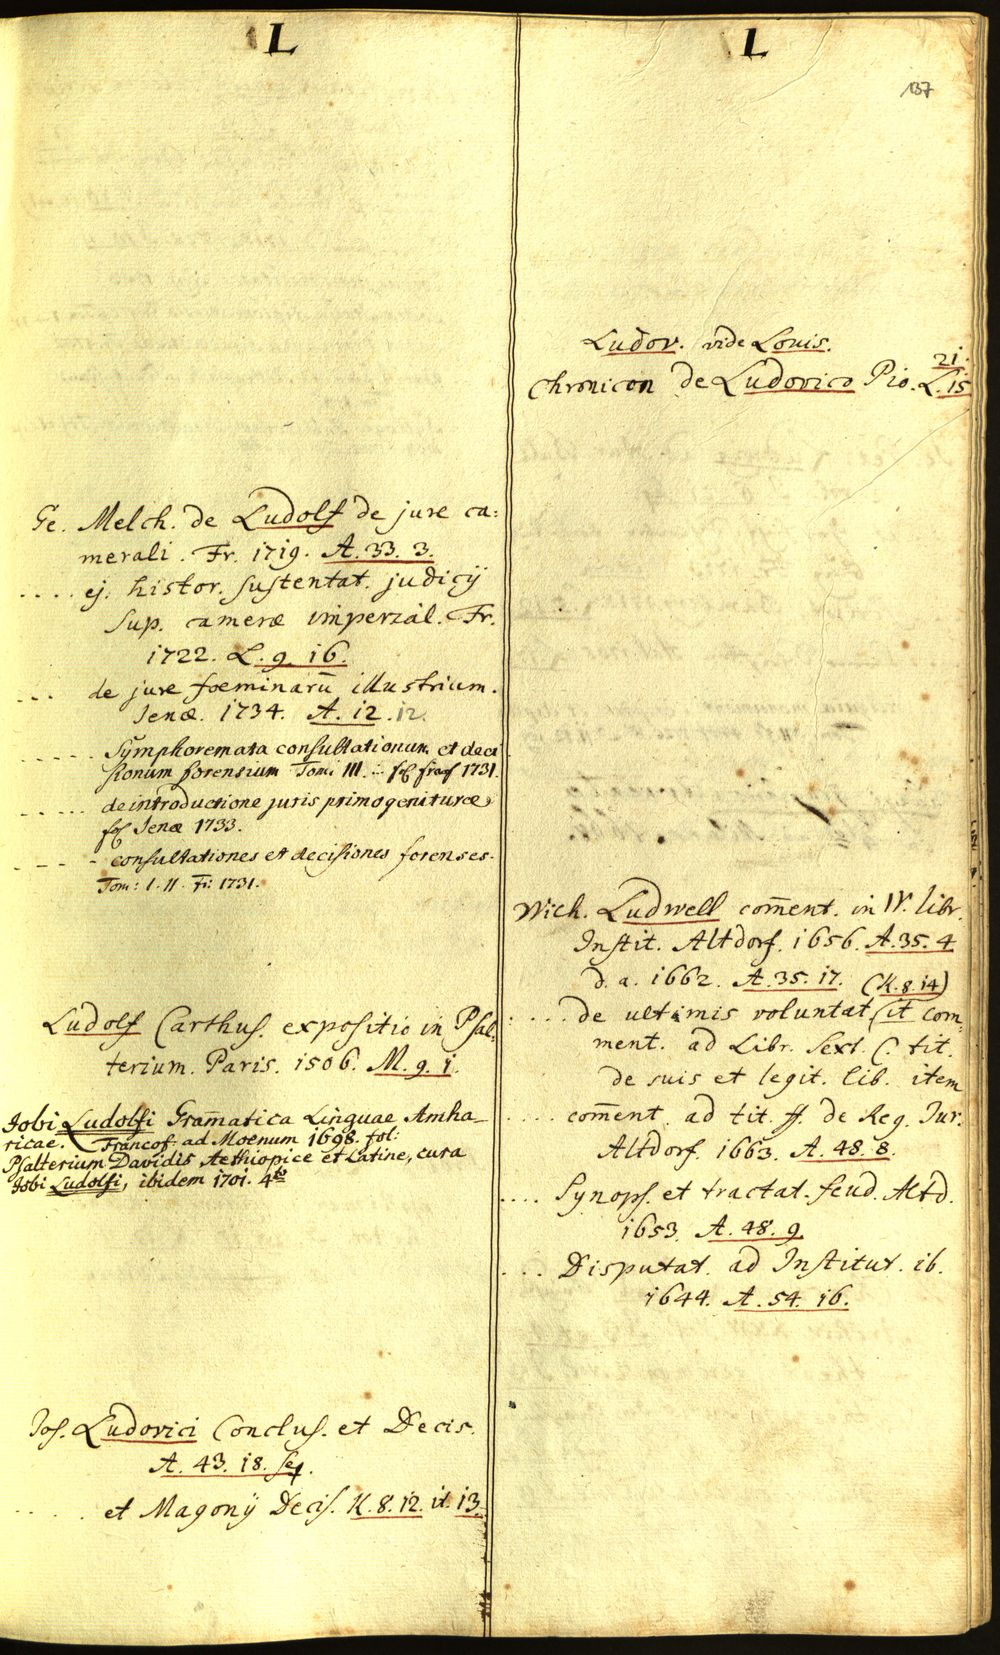 L
Ge. Melch. de Ludolf de jure ca:
merali. Fr. 1719. A. 33. 3.
.... ej. histor. sustentat. judicij
sup. cameræ imperial. Fr.
1722. L. 9. 16.
... de jure foeminarū illustrium.
Jenæ. 1734. A. 12. 12.
..... Symphoremata consultationum et deci
sionum forensium Tom: III. fol. 1731.
..... de introductione juris primogeniturae
fol Jenæ 1733.
- - - consultationes et decisiones forenses.
Tom: I. II. Fr: 1731.
Ludolf Carthus. expositio in Psal:
terium. Paris. 1506. M. 9. 1.
Jobi Ludolfi Gram̄atica Linguae Amha-
ricae. Francof. ad Moenum 1698. fol:
Psalterium Davidis Aethiopice et Latine, cura
Jobi Ludolfi, ibidem 1701. 4to
Jos. Ludovici Conclus. et Decis.
A. 43. 18. seq.
..... et Magonij Decis. K. 8. 12. it. 13.
L
137
Ludov. vide Louis.
21.
Chronicon de Ludovico Pio. L. 15
Wich. Ludwell com̄ent. in IV. libr.
Instit. Altdorf. 1656. A. 35. 4
d. a. 1662. A. 35. 17. (K. 8. 14)
.... de ultimis voluntat. sit com:
ment. ad Libr. Sext. C. tit.
de suis et legit. lib. item
.... com̄ent. ad tit. ff. de Reg. Jur.
Altdorf. 1663. A. 48. 8.
.... Synops. et tractat. feud. Altd.
1653. A. 48. 9.
... Disputat. ad Institut. ib.
1644. A. 54. 16.